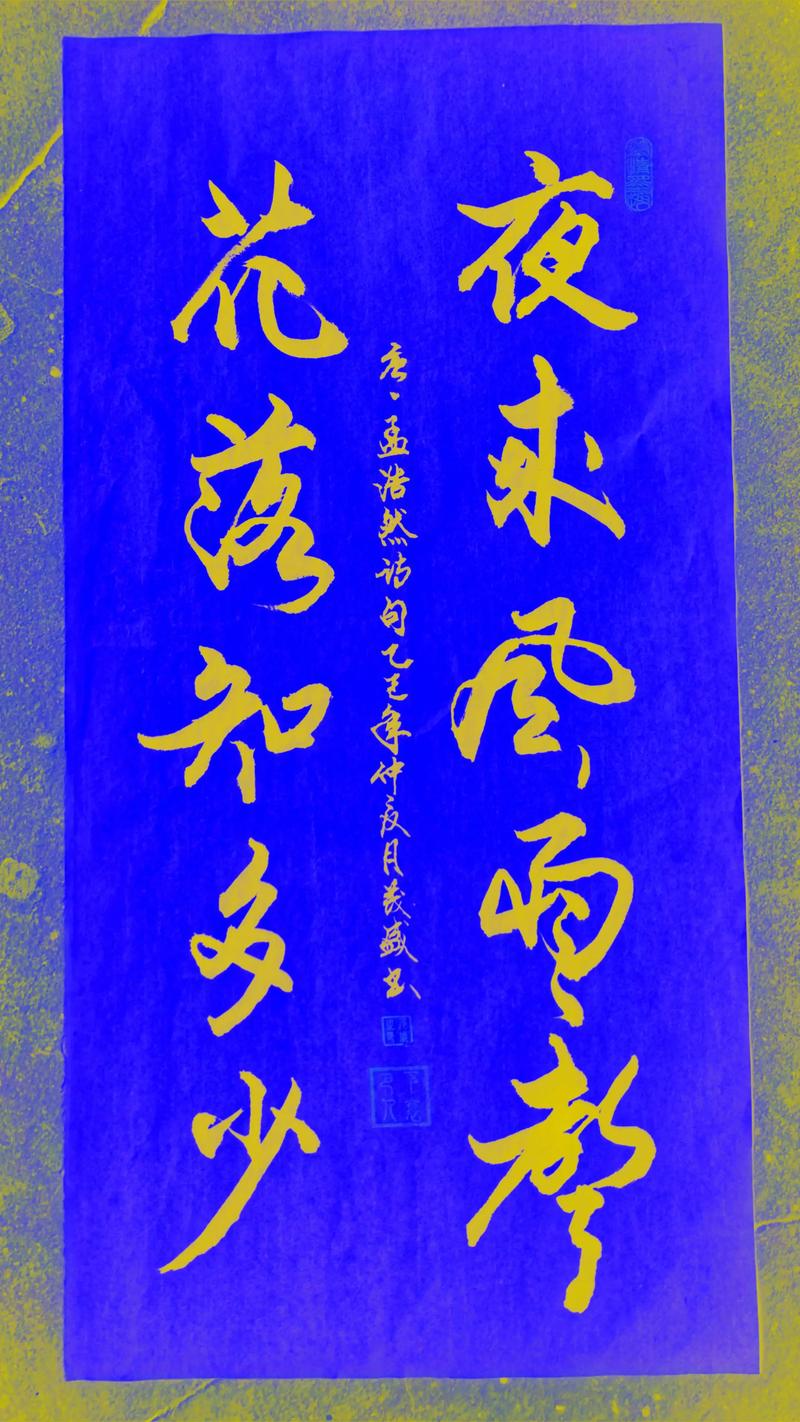 夜来风雨聲
花落知多少
唐、孟浩然诗句乙巳年仲夏月茂盛书